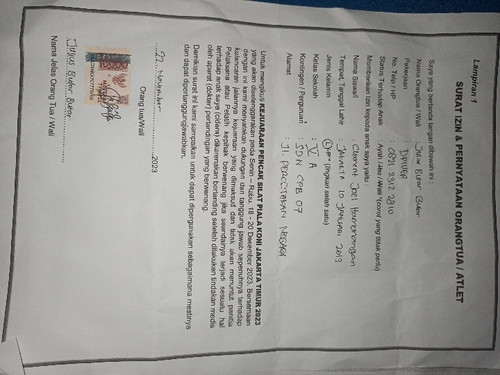 Lampiran 1
SURAT IZIN & PERNYATAAN ORANGTUA / ATLET
Saya yang bertanda tangan dibawah ini :
Nama Orangtua / Wali : Julius Butar Butar
Pekerjaan : DRIVER
No. Telp / HP
Status Terhadap Anak : Ayah / Ibu / Wali *(coret yang tidak perlu)
Memberikan izin kepada anak saya yaitu :
Nama Siswa/i : Clarent Joel
Tempat, Tanggal Lahir : JAKARTA 10 JANUARI 2013
Jenis Kelamin : L/P* (lingkari salah satu)
Kelas Sekolah : V A
Kontingen / Perguruan : SDN CPB 07
Alamat : Jl. PERCETAKAN NEGARA
Untuk mengikuti KEJUARAAN PENCAK SILAT PIALA KONI JAKARTA TIMUR 2023
yang akan diselenggarakan pada Senin – Rabu, 18 - 20 Desember 2023. Bersamaan
dengan ini kami menyatakan dukungan dan tanggung jawab sepenuhnya terhadap
kelancaran jalannya kejuaraan yang dimaksud dan tidak akan menuntut panitia
Pelaksana atau Pelatih kepihak berwenang jika seandainya terjadi sesuatu hal
terhadap anak saya (cidera) dikarenakan bertanding setelah dilakukan tindakan medis
oleh aparat (dokter) pertandingan yang berwenang.
Demikian surat ini kami sampaikan untuk dapat dipergunakan sebagaimana mestinya
dan dapat dipertanggungjawabkan.
22, November 2023
Orang tua/Wali
Julius Butar Butar
Nama Jelas Orang Tua / Wali